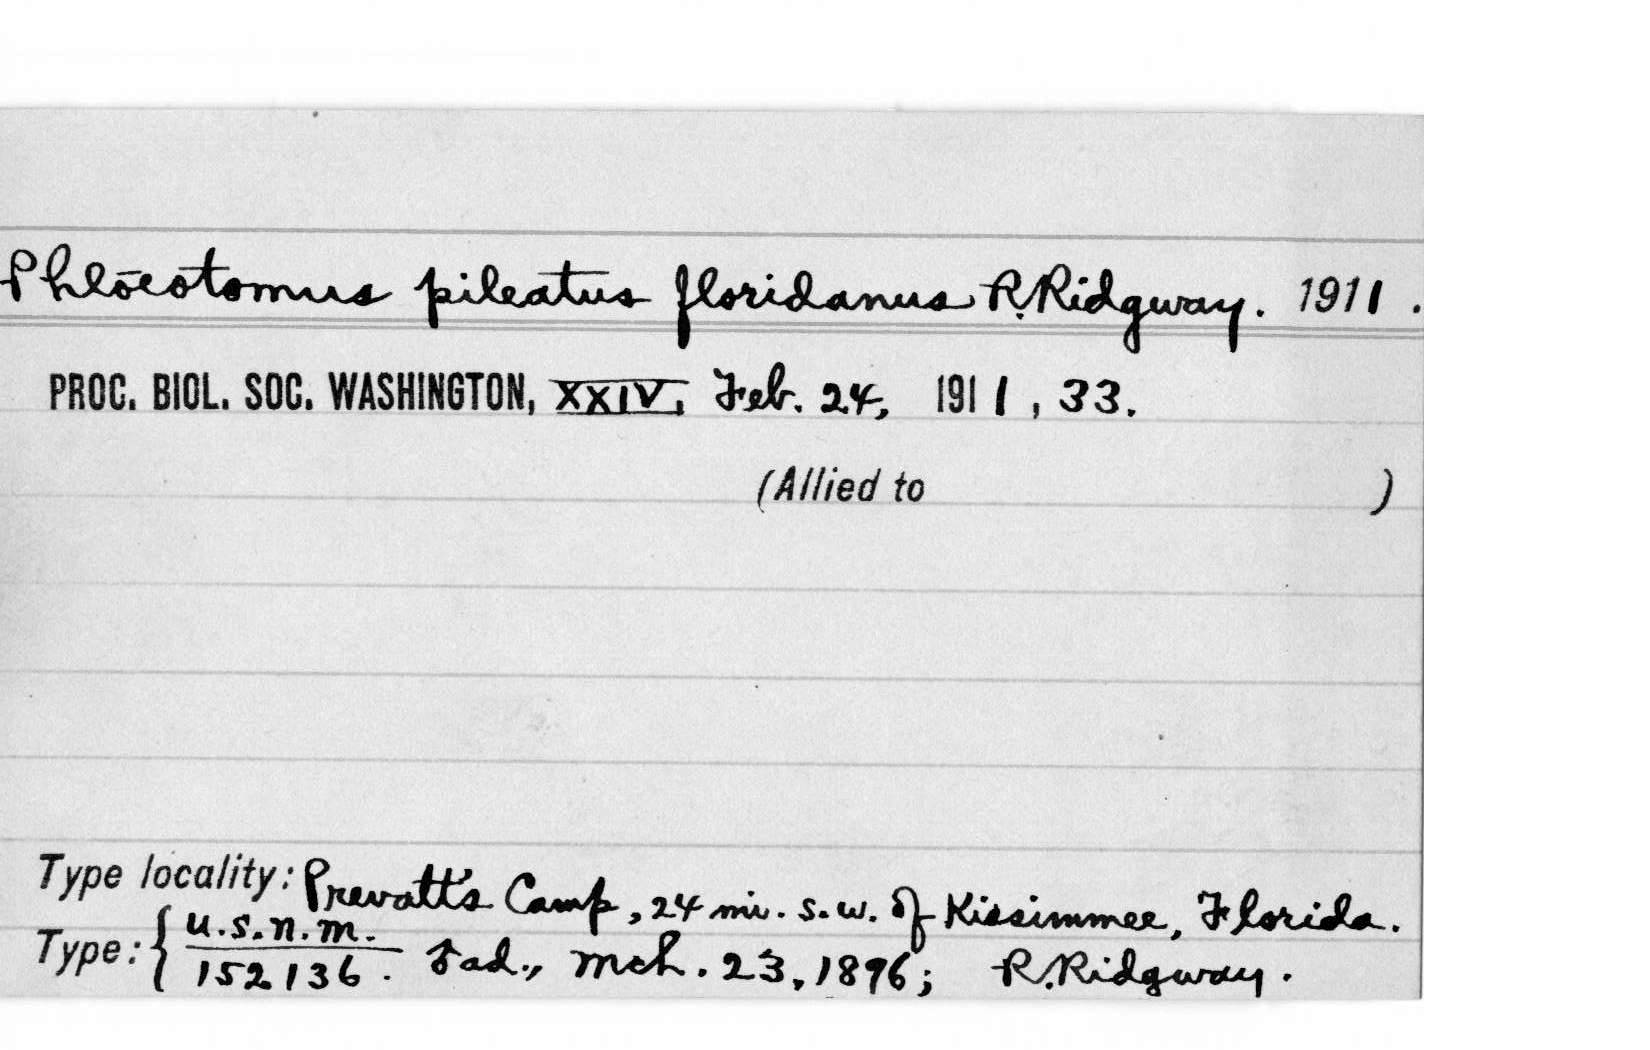 Phlœotomus pileatus floridanus R. Ridgway. 1911.
PROC. BIOL. SOC. WASHINGTON, XXIV, Feb. 24, 1911, 33.
(Allied to )
Type locality: Prevatt's Camp, 24 mi. s.w. of Kissimmee, Florida.
Type: { U.S.N.M.
152136. ad., Mch. 23, 1896; R. Ridgway.